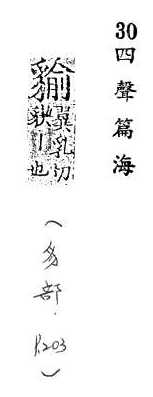 30四聲篇海
貐
異乳切
丨也
(豸部. P.203)